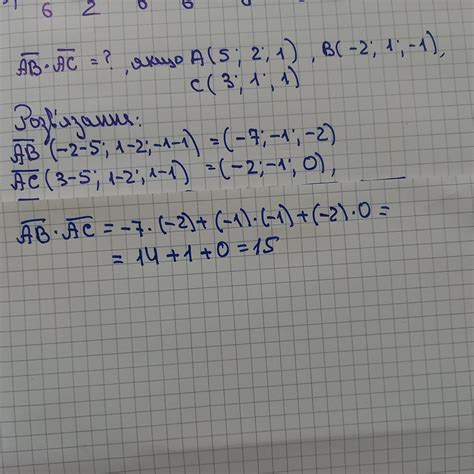 6 2 6 6
AB · AC = ? , якщо A(5; 2, 1) , B(-2; 1; -1),
C(3; 1; 1)
Розв'язання:
AB (-2-5; 1-2; -1-1) = (-7; -1; -2)
AC (3-5; 1-2; 1-1) = (-2; -1; 0),
AB · AC = -7 · (-2) + (-1) · (-1) + (-2) · 0 =
= 14 + 1 + 0 = 15